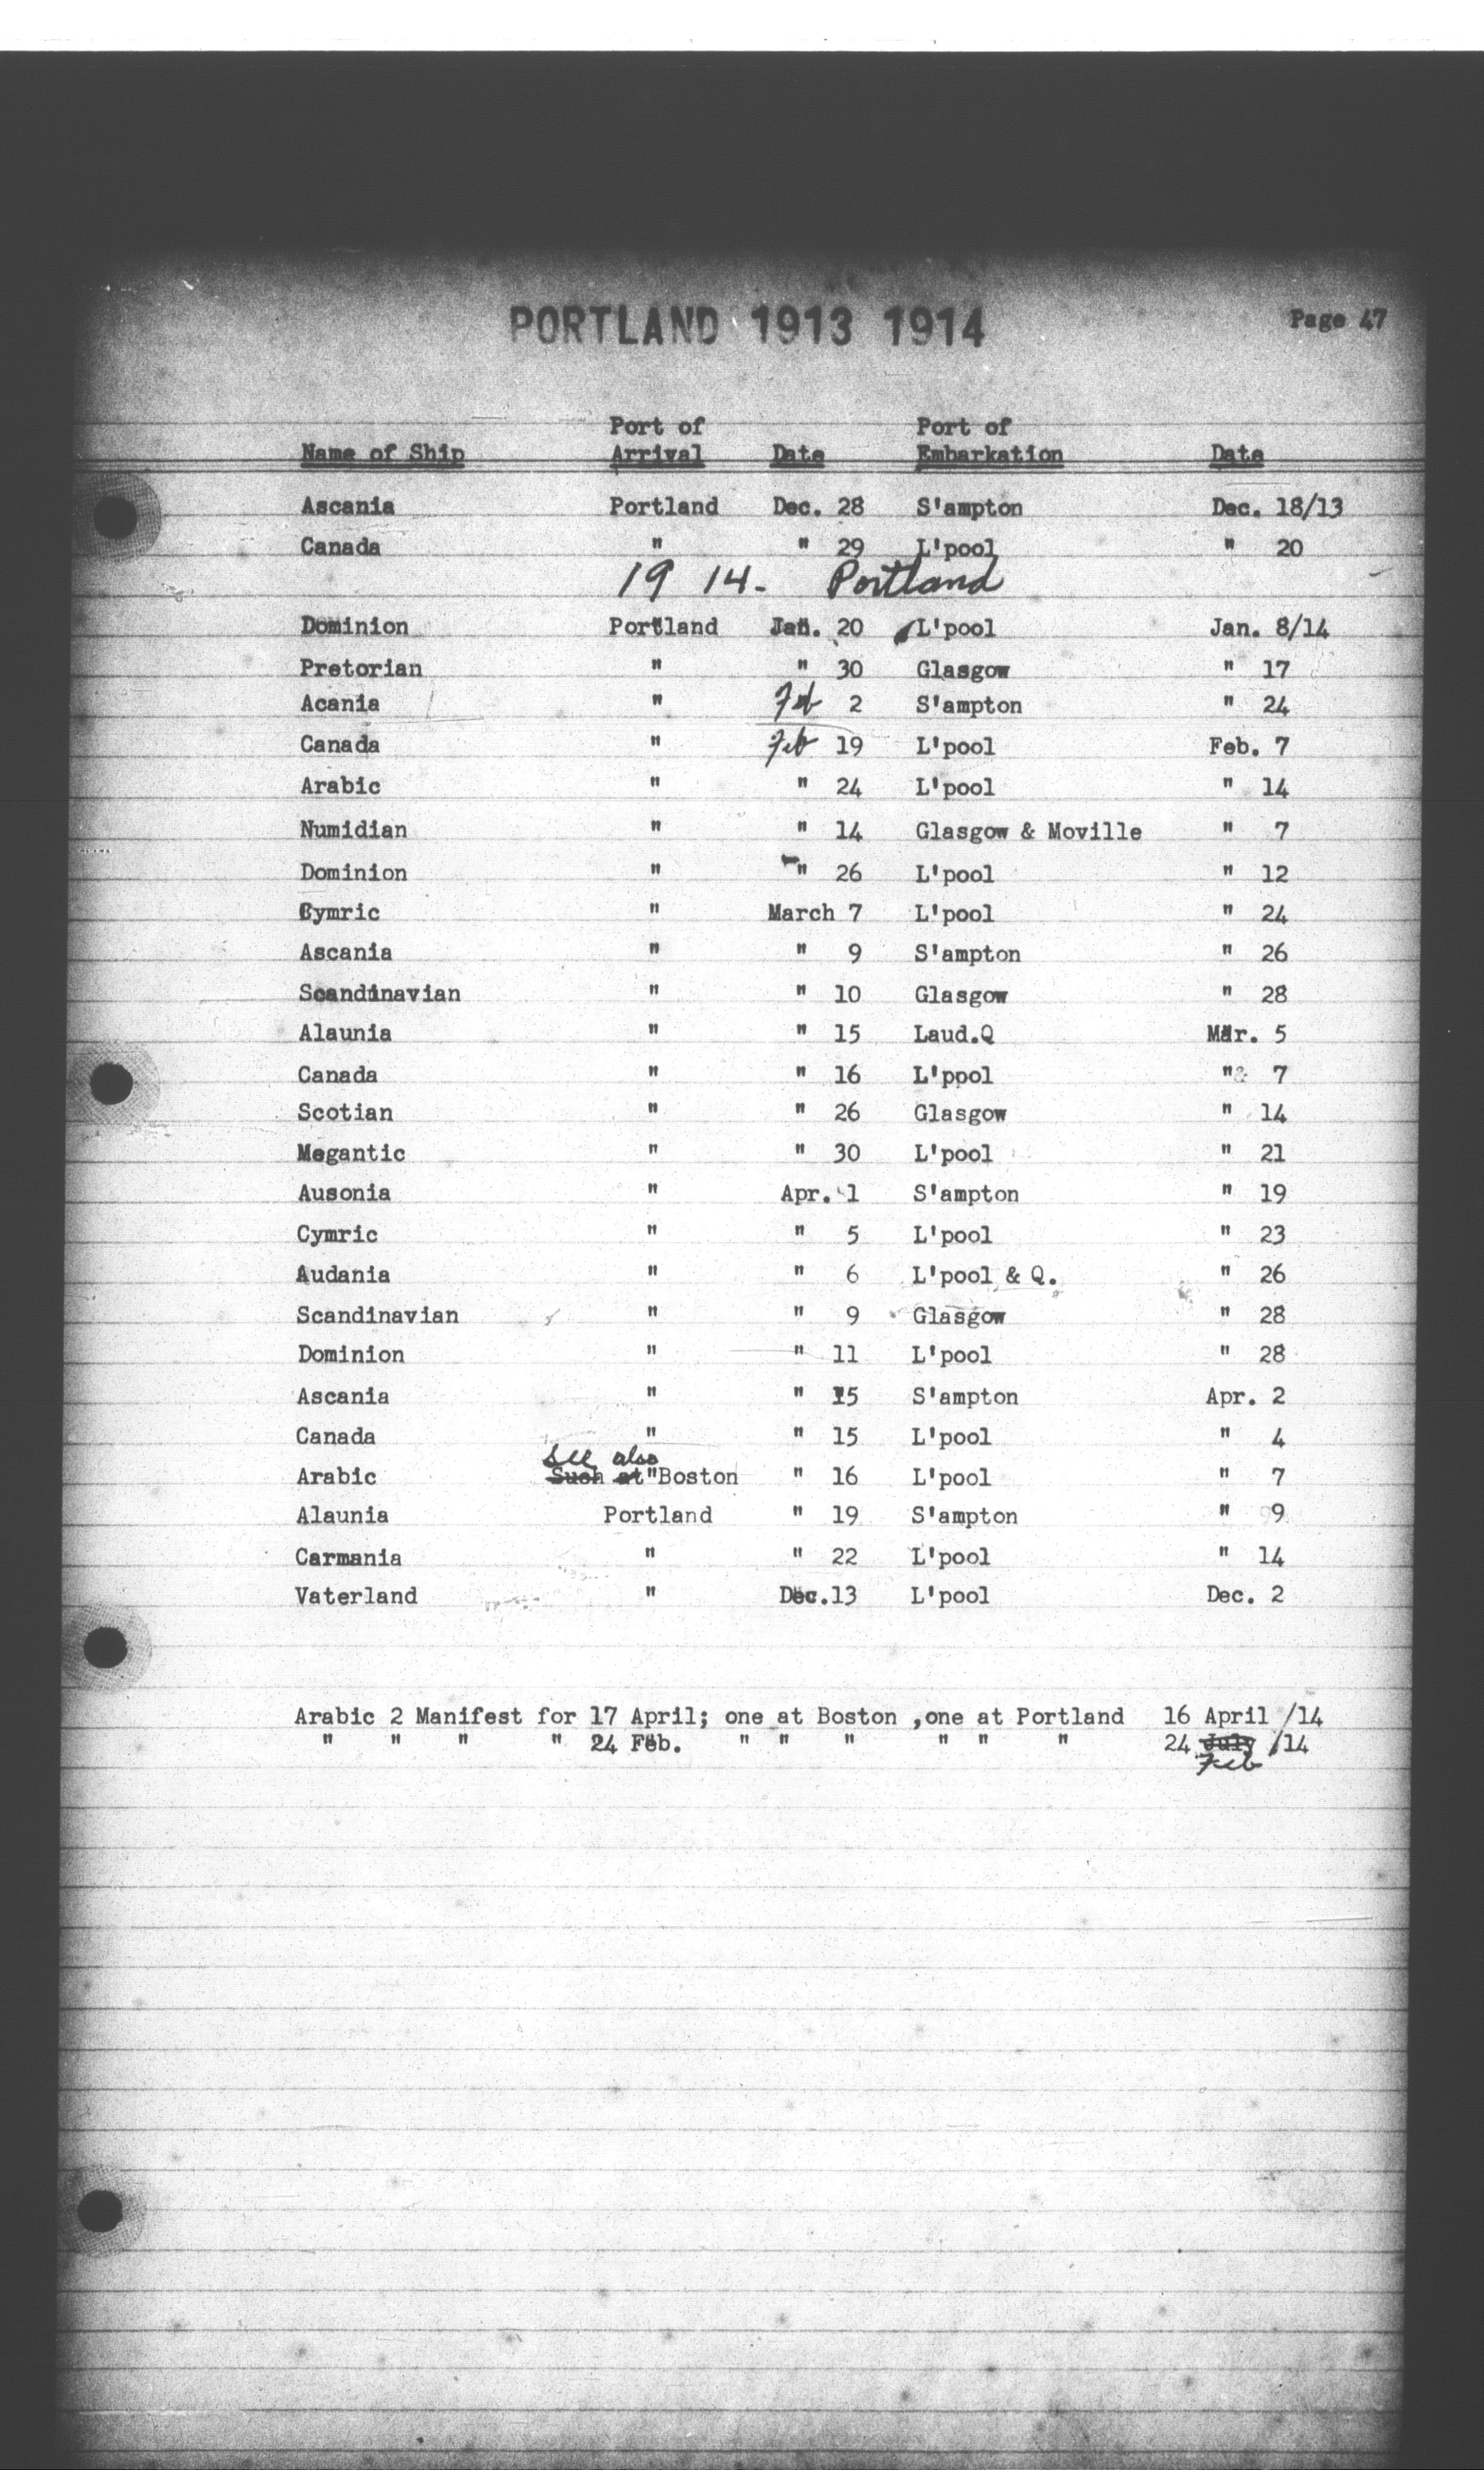 PORTLAND 1913 1914 Page 47
Port of Port of
Name of Ship Arrival Date Embarkation Date
Ascania Portland Dec. 28 S'ampton Dec. 18/13
Canada " " 29 L'pool " 20
19 14. Portland
Dominion Portland Jan. 20 L'pool Jan. 8/14
Pretorian " " 30 Glasgow " 17
Acania " Feb 2 S'ampton " 24
Canada " Feb 19 L'pool Feb. 7
Arabic " " 24 L'pool " 14
Numidian " " 14 Glasgow & Moville " 7
Dominion " " 26 L'pool " 12
Cymric " March 7 L'pool " 24
Ascania " " 9 S'ampton " 26
Scandinavian " " 10 Glasgow " 28
Alaunia " " 15 Laud.Q Mar. 5
Canada " " 16 L'ppol " 7
Scotian " " 26 Glasgow " 14
Megantic " " 30 L'pool " 21
Ausonia " Apr. 1 S'ampton " 19
Cymric " " 5 L'pool " 23
Audania " " 6 L'pool & Q. " 26
Scandinavian " " 9 Glasgow " 28
Dominion " " 11 L'pool " 28
Ascania " " 15 S'ampton Apr. 2
Canada " " 15 L'pool " 4
see also
Arabic Such at "Boston " 16 L'pool " 7
Alaunia Portland " 19 S'ampton " 9
Carmania " " 22 L'pool " 14
Vaterland " Dec.13 L'pool Dec. 2
Arabic 2 Manifest for 17 April; one at Boston ,one at Portland 16 April /14
" " " " 24 Feb. " " " " " " 24 July /14
Feb